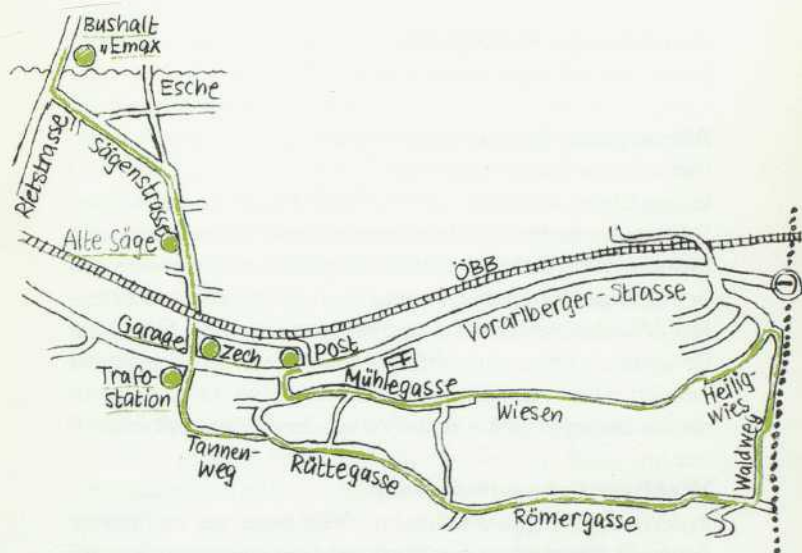 Bushalt
"Emax
Esche
Rietstrasse
Sägenstrasse
Alte Säge
ÖBB
Vorarlberger-Strasse
Garage
Zech
Post
Trafo-
station
Mühlegasse
Wiesen
Heilig-
wies
Waldweg
Tannen-
weg
Rüttegasse
Römergasse